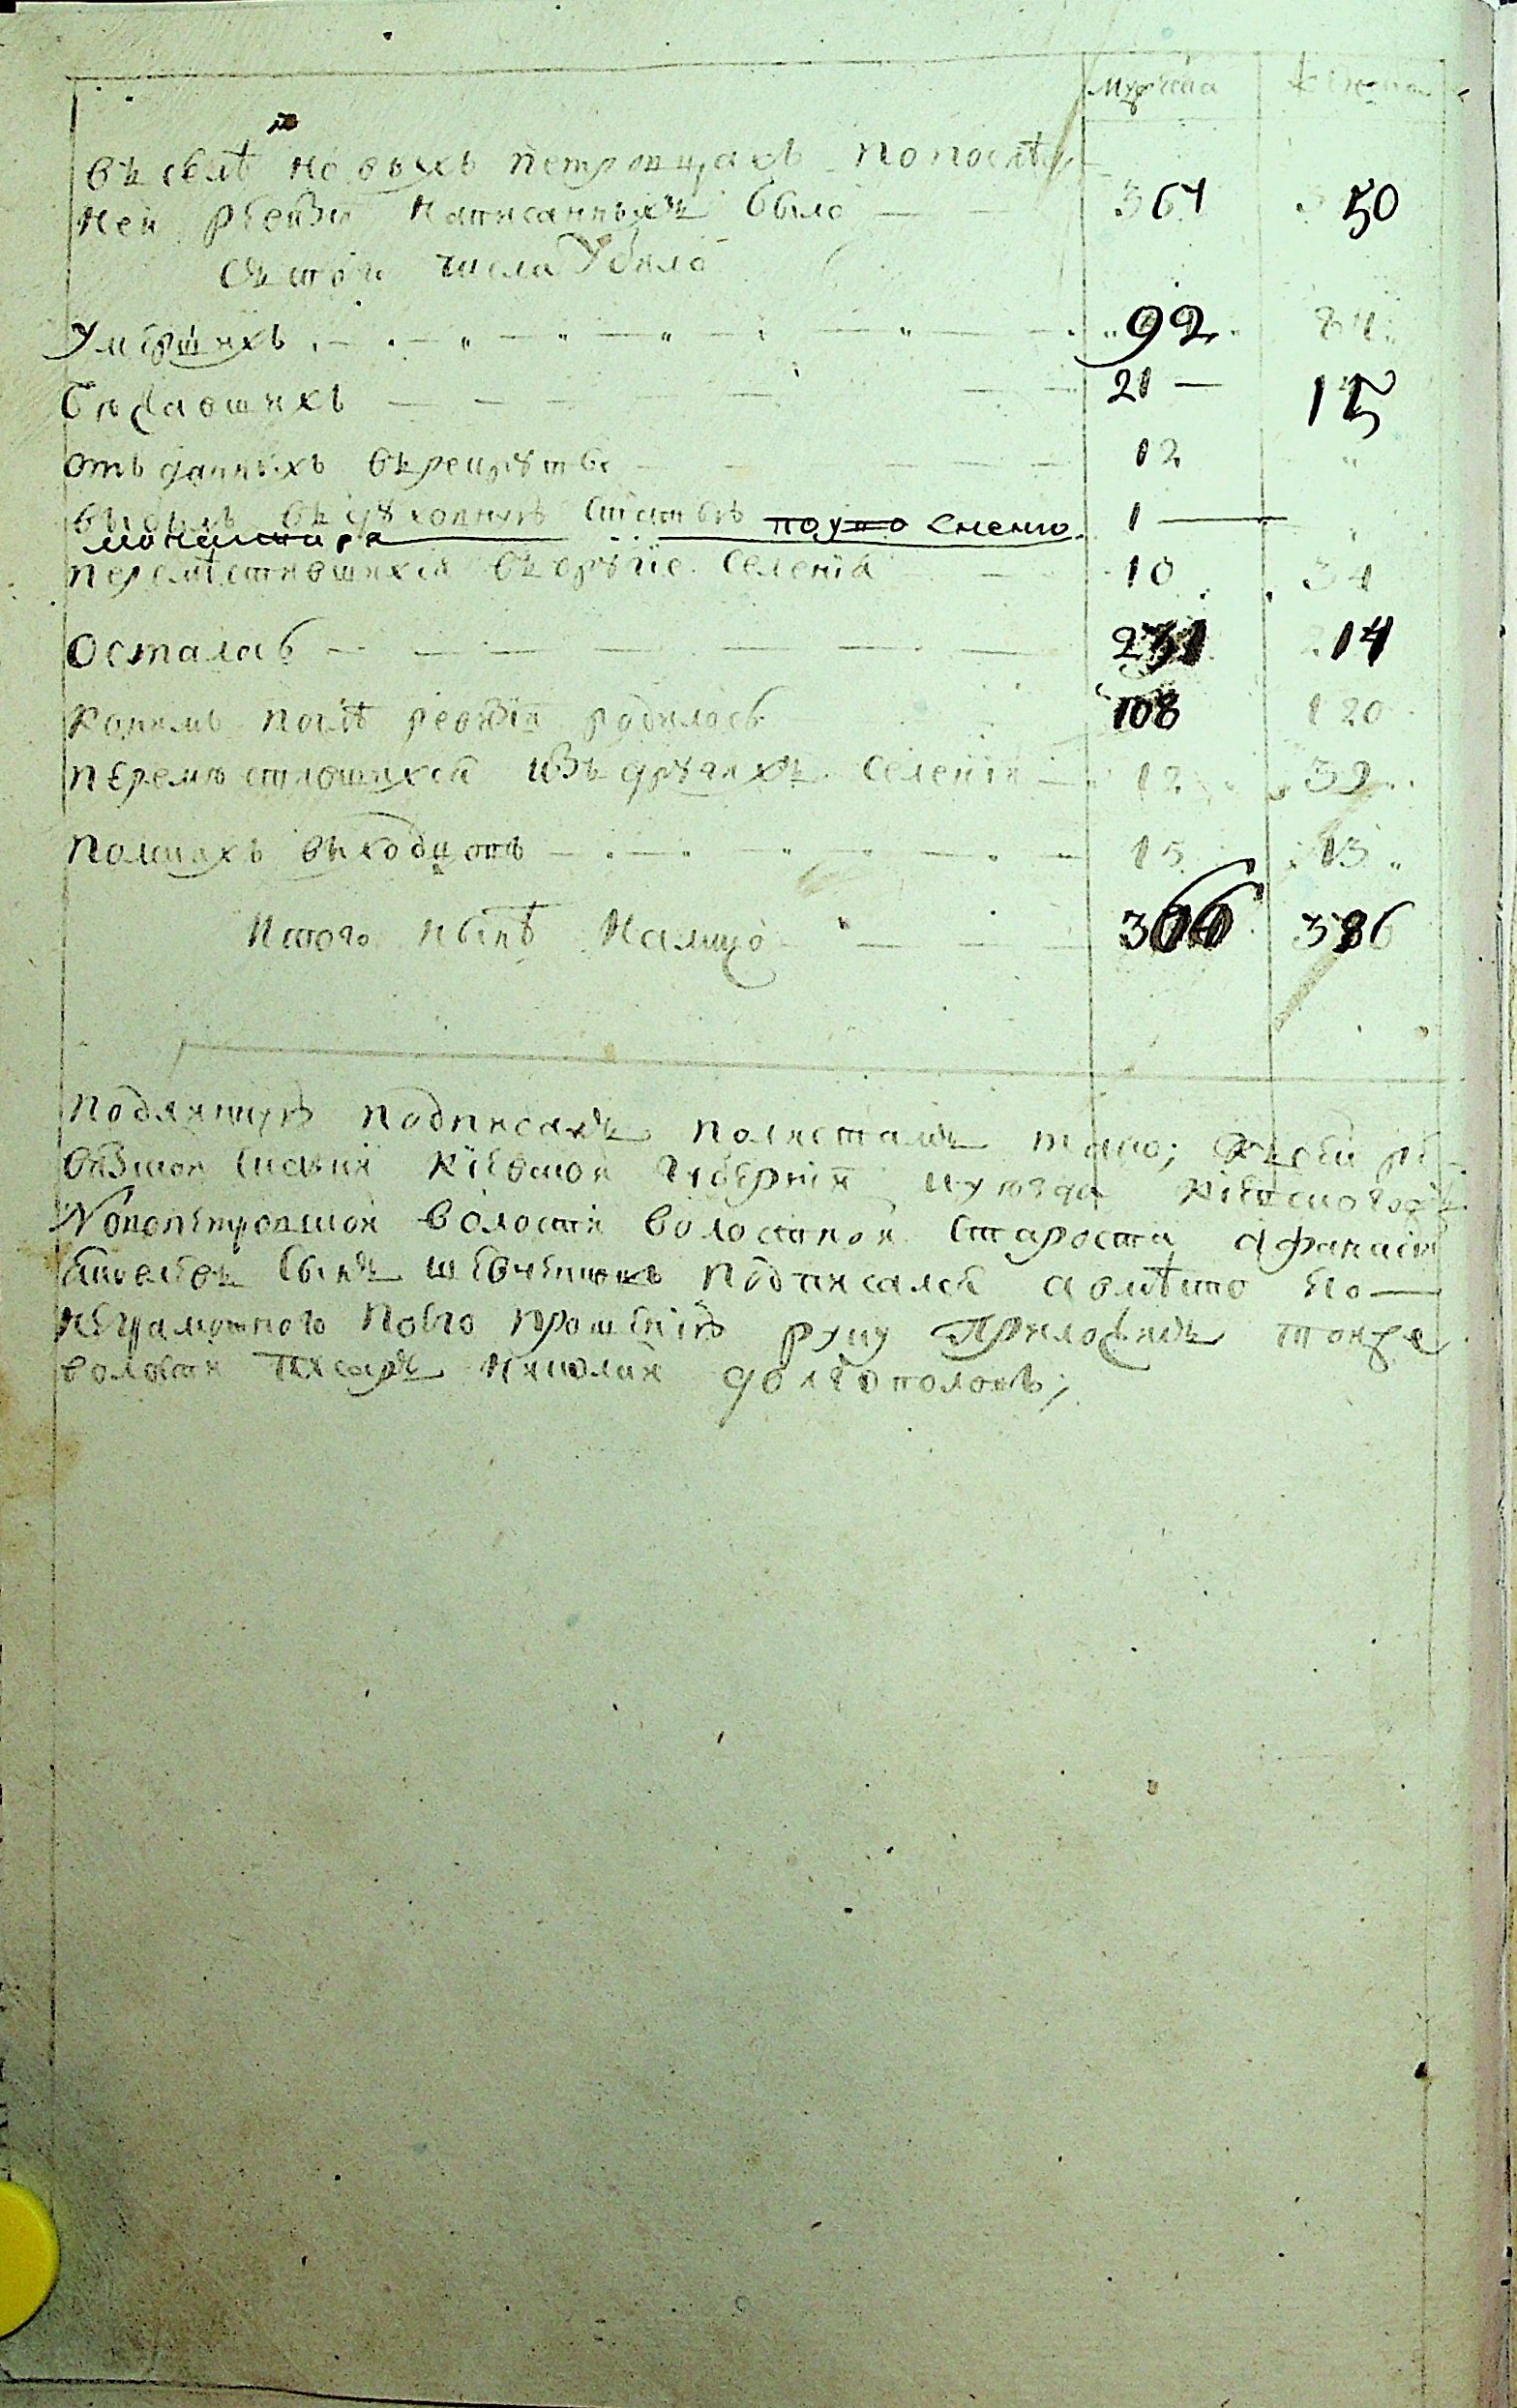 мужеска женска
въ селѣ новыхъ петровцахъ по послѣд
ней ревизіи написанныхъ было — 367 350
Съ того числа Убыло
Умершихъ 92 84
Бежавшихъ 21 — 15
отъданныхъ въ рекрутство 12
въ духовную 1 —
монастыра
переместившихся въ другіе селенія 10 34
Осталось 231 214
къ нимъ послѣ ревизіи родилось 108 120
переместившихся изъ другихъ селеній 12 39
полскихъ выходцовъ 15 13
Итого нынѣ налицо 366 386
подлинную подписалъ по листамъ тако; къ сей ре
визской сказки Кіевской губерніи и уезда Кіевского
Новопетровской волости волостной староста Афанасій
сынъ шевченко подписался а вместо его
неграмотного по его прошенію руку приложилъ тоей же
волости писарь николай долгополовъ;